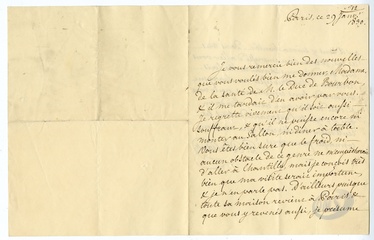 Paris, ce 29 Janv.
1830.
Je vous remercie bien des nouvelles
que vous voulés bien me donner, Madame,
de la santé de M. le Duc de Bourbon
& il me tardait d'en avoir par vous.
Je regrette vivement qu'il soit aussi
souffrant, & qu'il ne puisse encore ni
monter au Sallon, ni diner à table.
Vous êtes bien sure que le froid, ni
aucun obstacle de ce genre ne m'empêcherait
d'aller à Chantilly, mais je conçois très
bien que ma visite serait importune,
& je n'en parle pas. D'ailleurs puisque
toute sa maison revient à Paris &
que vous y revenés aussi, je présume